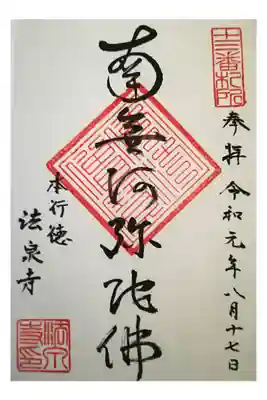 十三番札所
奉拝 令和元年八月十七日
南無阿弥陀佛
本行徳
法泉寺
法泉寺印